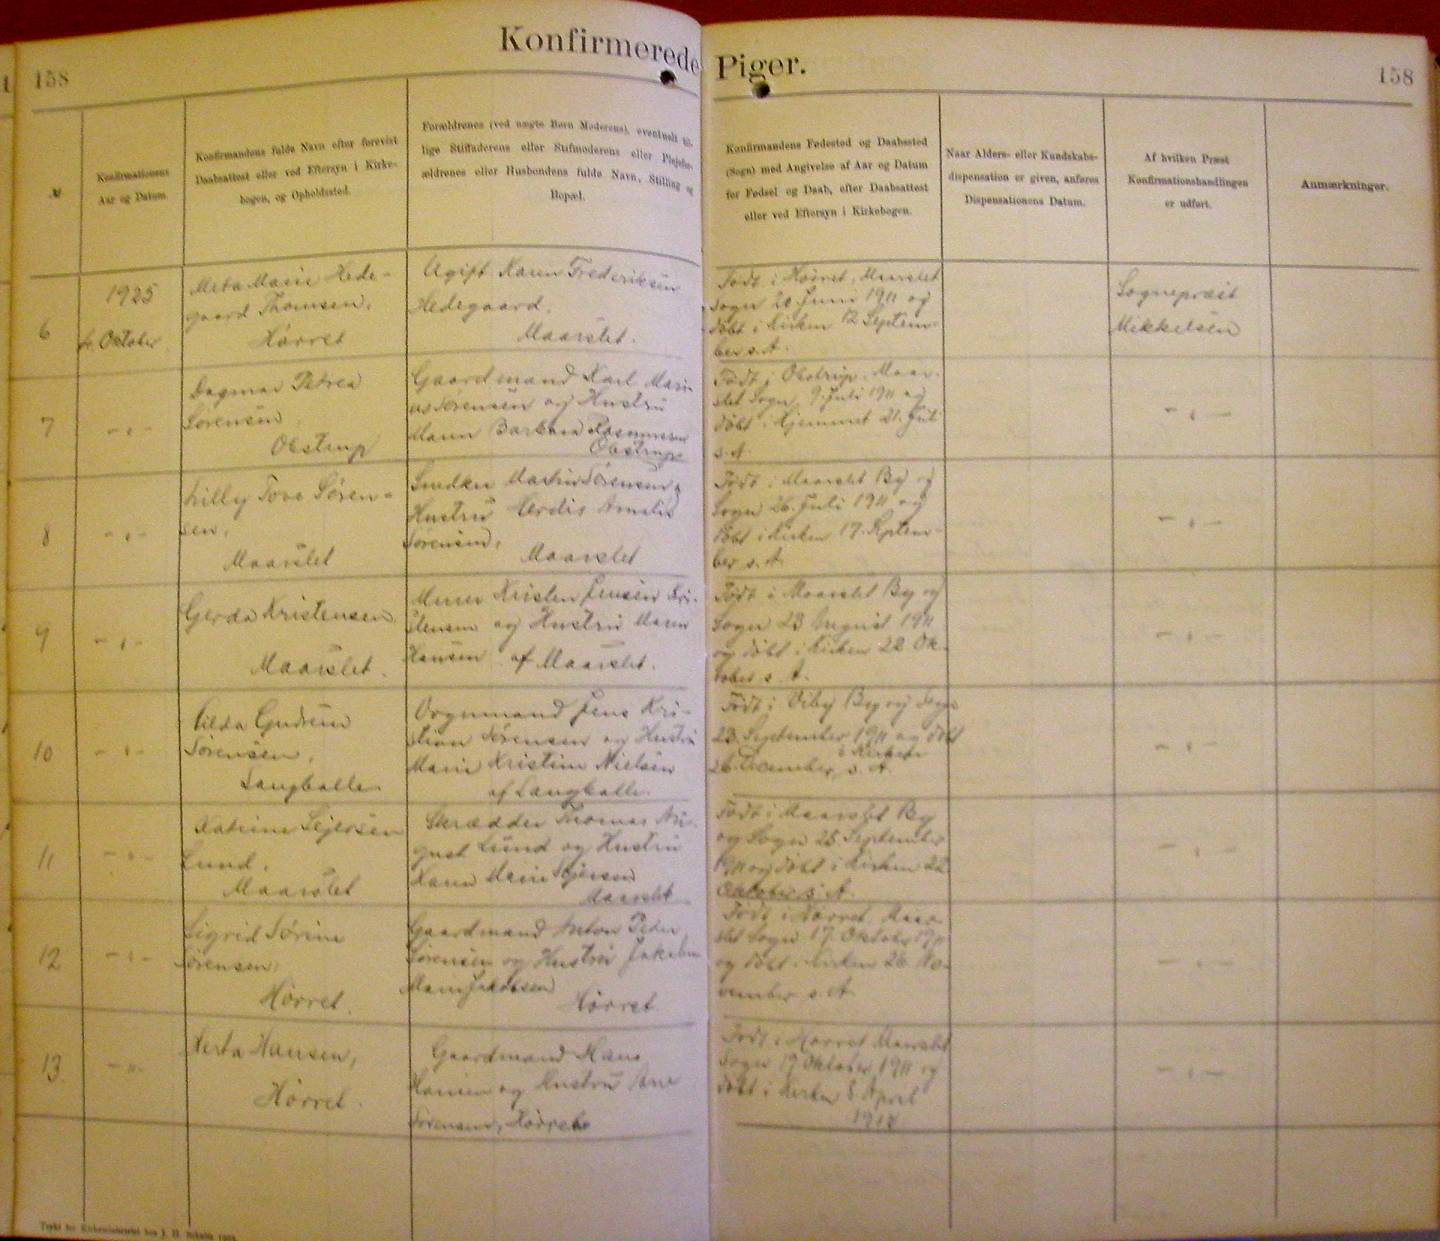 158
Konfirmerede Piger.
158
Konfirmationens
Aar og Datum.
Konfirmandens fulde Navn efter forevist
Daabsattest eller ved Eftersyn i Kirke-
bogen, og Opholdssted.
Forældrenes (ved uægte Børn Moderens), eventuelt til-
lige Stiffaderens eller Stifmoderens eller Plejefor-
ældrenes eller Husbondens fulde Navn, Stilling og
Bopæl.
Konfirmandens Fødested og Daabssted
(Sogn) med Angivelse af Aar og Datum
for Fødsel og Daab, efter Daabsattest
eller ved Eftersyn i Kirkebogen.
Naar Alders- eller Kundskabs-
dispensation er given, anføres
Dispensationens Datum.
Af hvilken Præst
Konfirmationshandlingen
er udført.
Anmærkninger.
6
1925
Oktober
Meta Marie Hede-
gaard Thomsen,
Hørret
Ugift Karen Frederiksen
Hedegaard.
Maarslet.
Født i Hørret, Maarslet
Sogn Juni 1911 og
døbt i Kirken 12 Septem-
ber s. A.
Sognepræst
Mikkelsen
7
- " -
Dagmar Petrea
Sørensen
Obstrup
Gaardmand Karl Mari-
us Sørensen og Hustru
Maren Barbara Rasmussen
Obstrup
Født i Obstrup, Maar-
slet Sogn, 9. Juli 1911 og
døbt i Hjemmet 21. Juli
s. A.
- " -
8
- " -
Lilly Tove Søren-
sen,
Maarslet
Snedker Martin Sørensen og
Hustru
Sørensen,
Maarslet
Født i Maarslet By og
Sogn 26. Juli 1911 og
døbt i Kirken 17. Septem-
ber s. A.
- " -
9
- " -
Gerda Kristensen,
Maarslet.
Murer Kristen Jensen Kri-
stensen og Hustru Maren
Hansen af Maarslet.
Født i Maarslet By og
Sogn 23 August 1911
og døbt i Kirken 22. Ok-
tober s. A.
- " -
10
- " -
Gudrun
Sørensen,
Langballe
Bogmand Jens Kri-
stian Sørensen og Hustru
Marie Kristine Nielsen
af Langballe.
Født i Viby By og Sogn
23. September 1911 og døbt
i Kirken
26. December, s. A.
- " -
11
- " -
Katrine Sejersen
Lund.
Maarslet
Skrædder Thomas Au-
gust Lund og Hustru
Karen Marie Sejersen
Maarslet
Født i Maarslet By
og Sogn 25. September
1911 og døbt i Kirken 22
Oktober s. A.
- " -
12
- " -
Sigrid Sørine
Sørensen,
Hørret.
Gaardmand Anton Peder
Sørensen og Hustru
Hørret
Født i Hørret, Maar-
slet Sogn 17. Oktober 1911
og døbt i Kirken 26. No-
vember s. A.
- " -
13
- " -
Herta Hansen,
Hørret.
Gaardmand Hans
Hansen og Hustru Ane
Sørensen, Hørret
Født i Hørret Maarslet
Sogn 19 Oktober 1911 og
døbt i Kirken 8 April
- " -